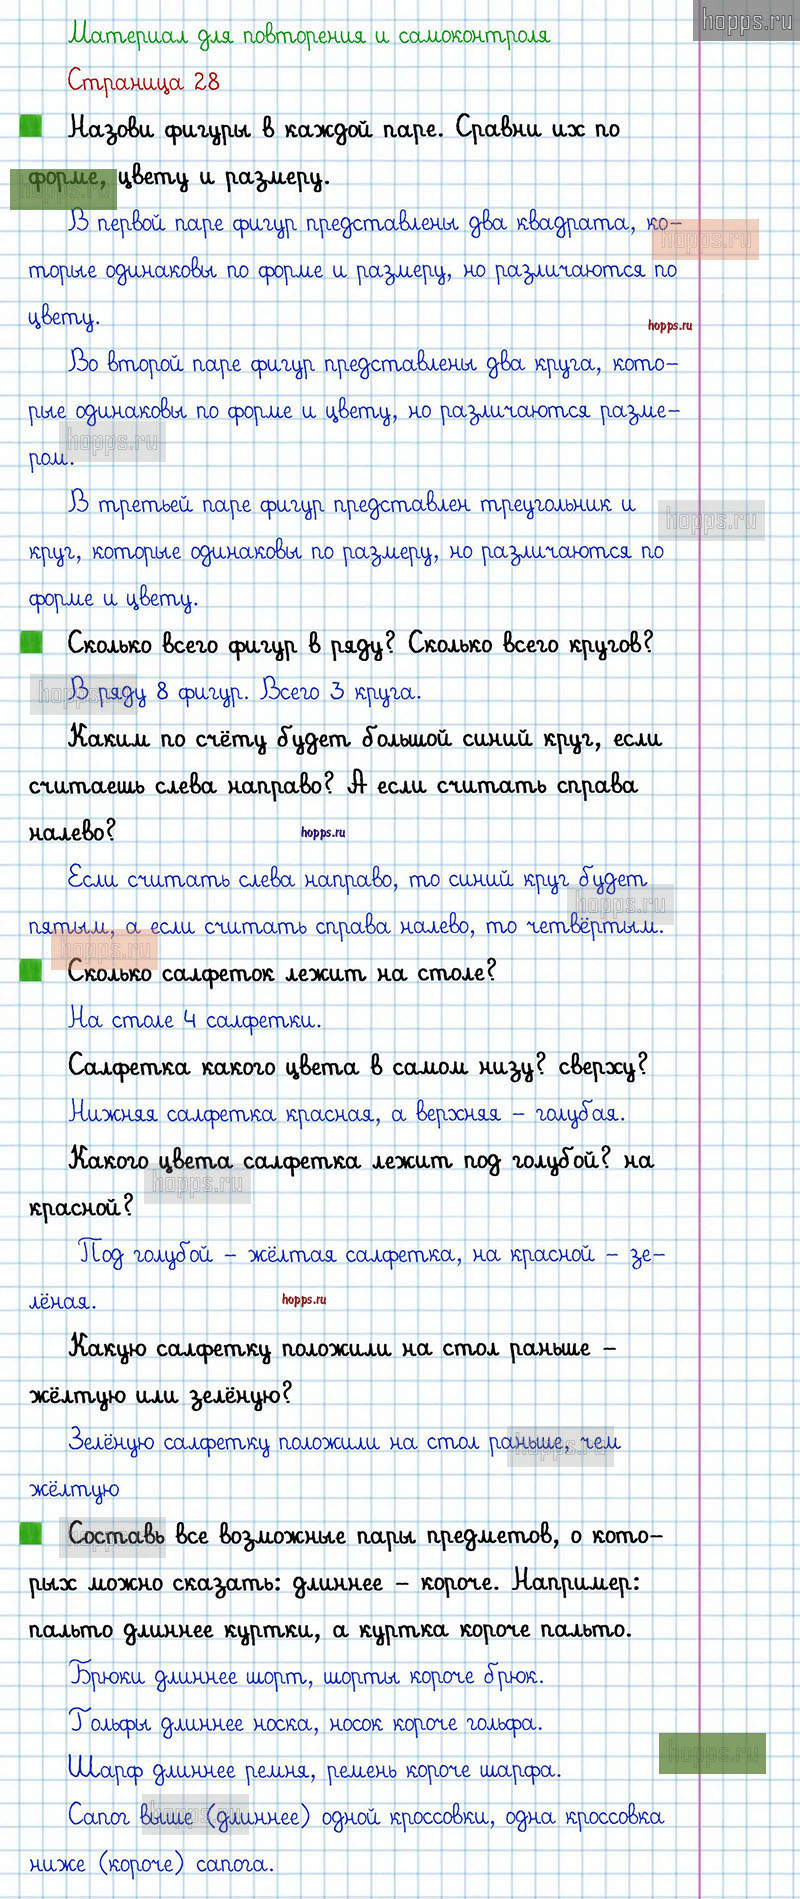 hopps.ru
Материал для повторения и самоконтроля
Страница 28
Назови фигуры в каждой паре. Сравни их по
форме, цвету и размеру.
hopps.ru
В первой паре фигур представлены два квадрата, ко-
hopps.ru
торые одинаковы по форме и размеру, но различаются по
цвету.
hopps.ru
Во второй паре фигур представлены два круга, кото-
рые одинаковы по форме и цвету, но различаются разме-
hopps.ru
ром.
В третьей паре фигур представлен треугольник и
hopps.ru
круг, которые одинаковы по размеру, но различаются по
форме и цвету.
Сколько всего фигур в ряду? Сколько всего кругов?
В ряду 8 фигур. Всего 3 круга.
hopps.ru
Каким по счёту будет большой синий круг, если
считаешь слева направо? А если считать справа
налево?
hopps.ru
Если считать слева направо, то синий круг будет
hopps.ru
пятым, а если считать справа налево, то четвёртым.
hopps.ru
Сколько салфеток лежит на столе?
На столе 4 салфетки.
Салфетка какого цвета в самом низу? сверху?
Нижняя салфетка красная, а верхняя – голубая.
Какого цвета салфетка лежит под голубой? на
hopps.ru
красной?
Под голубой – жёлтая салфетка, на красной – зе-
лёная.
hopps.ru
Какую салфетку положили на стол раньше –
жёлтую или зелёную?
Зелёную салфетку положили на стол раньше, чем
hopps.ru
жёлтую
Составь все возможные пары предметов, о кото-
hopps.ru
рых можно сказать: длиннее – короче. Например:
пальто длиннее куртки, а куртка короче пальто.
Брюки длиннее шорт, шорты короче брюк.
Гольфы длиннее носка, носок короче гольфа.
hopps.ru
Шарф длиннее ремня, ремень короче шарфа.
Сапог выше (длиннее) одной кроссовки, одна кроссовка
hopps.ru
ниже (короче) сапога.